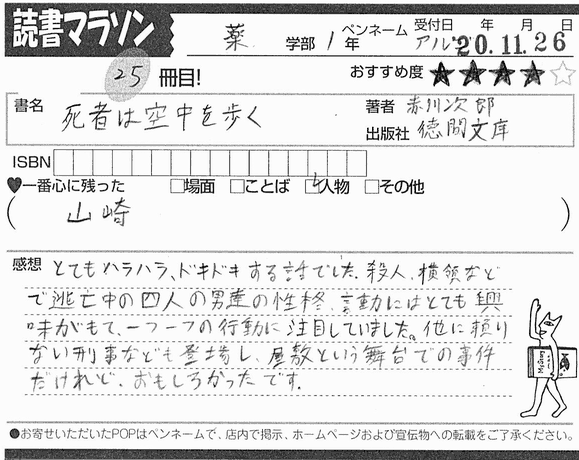 読書マラソン
薬 学部 1 年 ペンネーム アルパ 受付日 年 月 日 20.11.26
25 冊目! おすすめ度 ★★★★☆
書名 死者は空中を歩く 著者 赤川次郎
出版社 徳間文庫
ISBN
♥一番心に残った □場面 □ことば □人物 □その他
( 山崎 )
感想 とてもハラハラ、ドキドキする話でした。殺人、横領など
で逃亡中の四人の男達の性格、言動にはとても興
味がもて、一つ一つの行動に注目していました。他に頼り
ない刑事なども登場し、屋敷という舞台での事件
だけれど、おもしろかったです。
●お寄せいただいたPOPはペンネームで、店内で掲示、ホームページおよび宣伝物への転載をご了承ください。